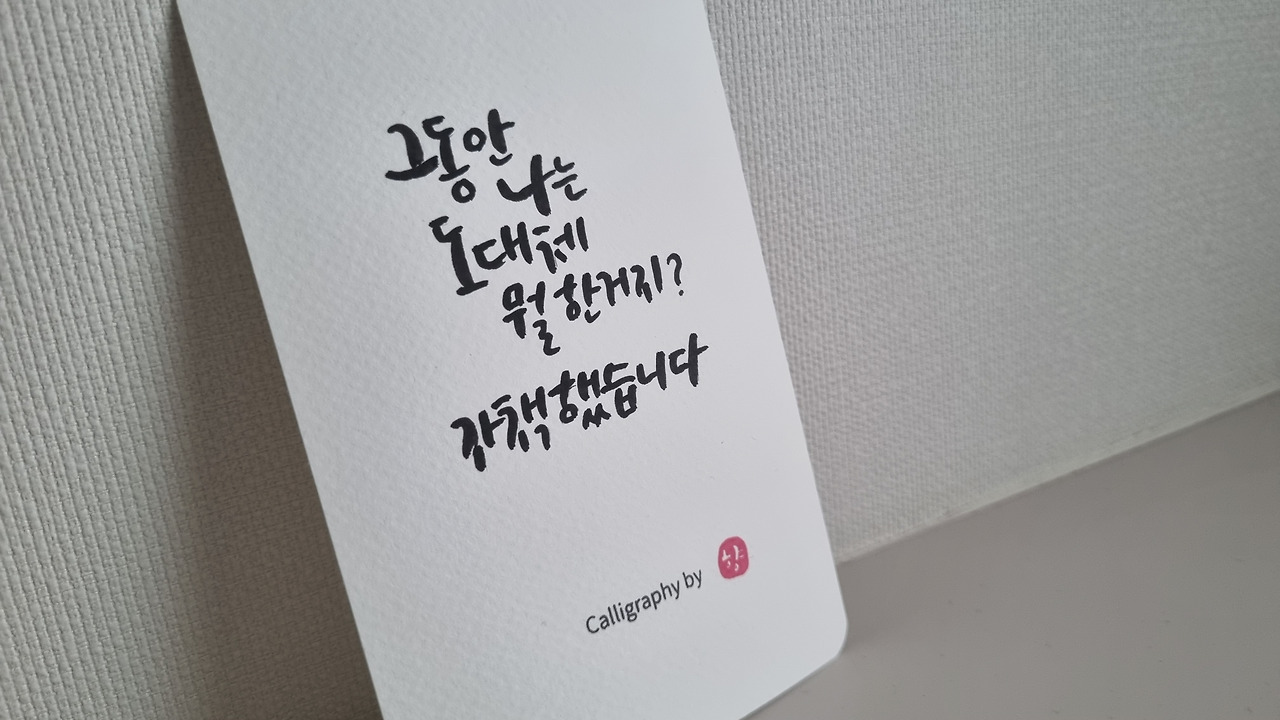 그동안
나는
도대체
뭘 한거지?
자책했습니다
Calligraphy by